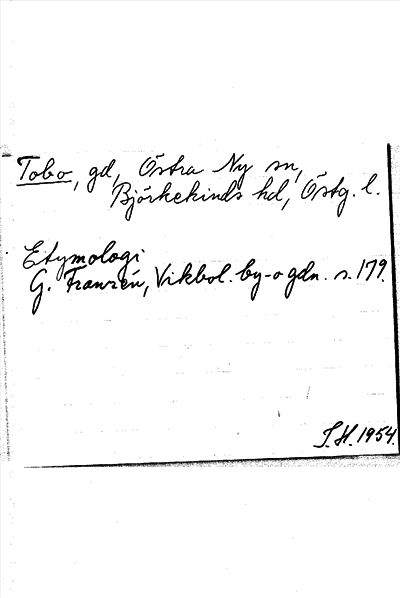 Tobo, gd, Östra Ny sn,
Björkekinds hd, Östg. l.
Etymologi
G. Franzén, Vikbol. by- o gdn. s. 179.
S.H. 1954.